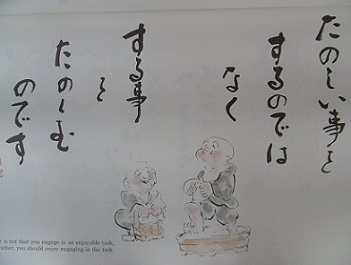 たのしい事を
するのでは
なく
する事
を
たのしむ
のです
is not that you engage in an enjoyable task,
you should enjoy engaging in the task